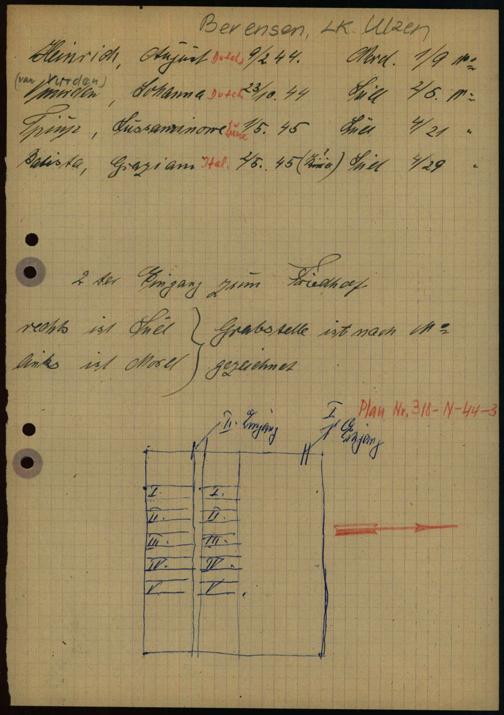 Berensen, LK. Ülzen
Heinrich, August Dutch 9/2 44. Nord. 1/9 Nº
(van Vürden)
Johanna Dutch 23/10. 44 Süd 2/5. Nº
1/5. 45 Süd 4/21 "
Batista, Graziani Ital. 2/5. 45 (Kind) Süd 4/29 "
2 ter Eingang zum Friedhof
rechts ist Süd } Grabstelle ist nach Nº
links ist Nord } gezeichnet
Plan Nr. 318-N-44-3
II. Eingang
I Eingang
I. I.
II. II.
III. III.
IV. IV.
V V